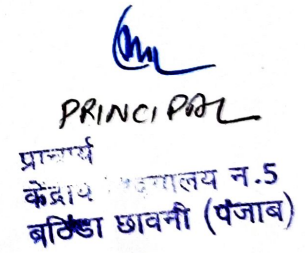 PRINCIPAL
प्राचार्य
केंद्रीय
न.5
बठिंडा छावनी (पंजाब)